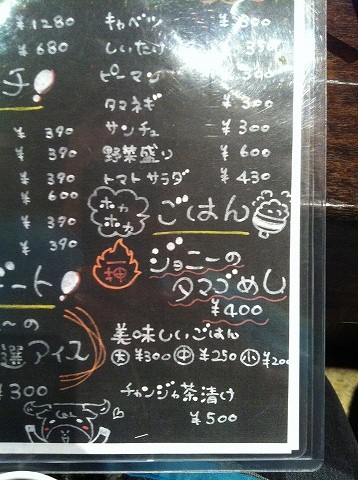 ¥1280
¥680
チ
¥390
¥390
¥390
¥600
¥390
¥390
ート
〜の
選アイス
¥300
キャベツ ¥300
しいたけ ¥390
ピーマン ¥390
タマネギ ¥300
サンチュ ¥300
野菜盛り ¥600
トマトサラダ ¥430
ホカホカ
ごはん
一押
ジョニーの
タマゴめし
¥400
美味しいごはん
大 ¥300 中 ¥250 小 ¥200
チャンジャ茶漬け
¥500